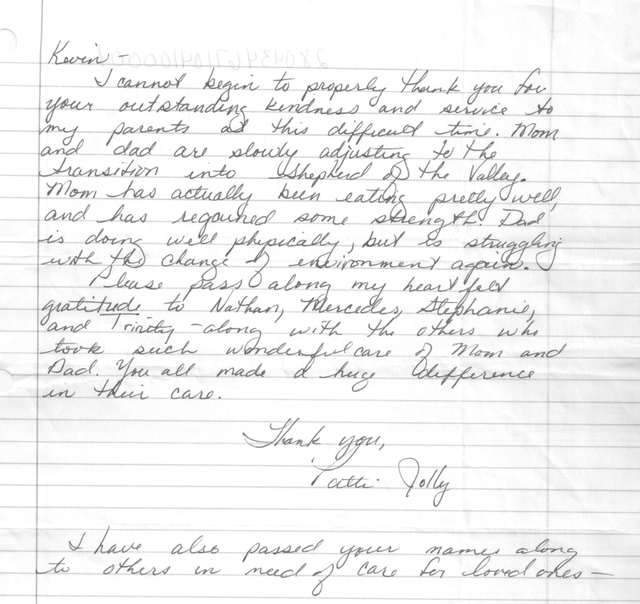 Kevin -
I cannot begin to properly thank you for
your outstanding kindness and service to
my parents at this difficult time. Mom
and dad are slowly adjusting to the
transition into Shepherd of the Valley.
Mom has actually been eating pretty well,
and has regained some strength. Dad
is doing well physically, but is struggling
with the change of environment again.
Please pass along my heart felt
gratitude to Nathan, Mercedes, Stephanie,
and Trinity - along with the others who
took such wonderful care of Mom and
Dad. You all made a huge difference
in their care.
Thank you,
Patti Jolly
I have also passed your names along
to others in need of care for loved ones -